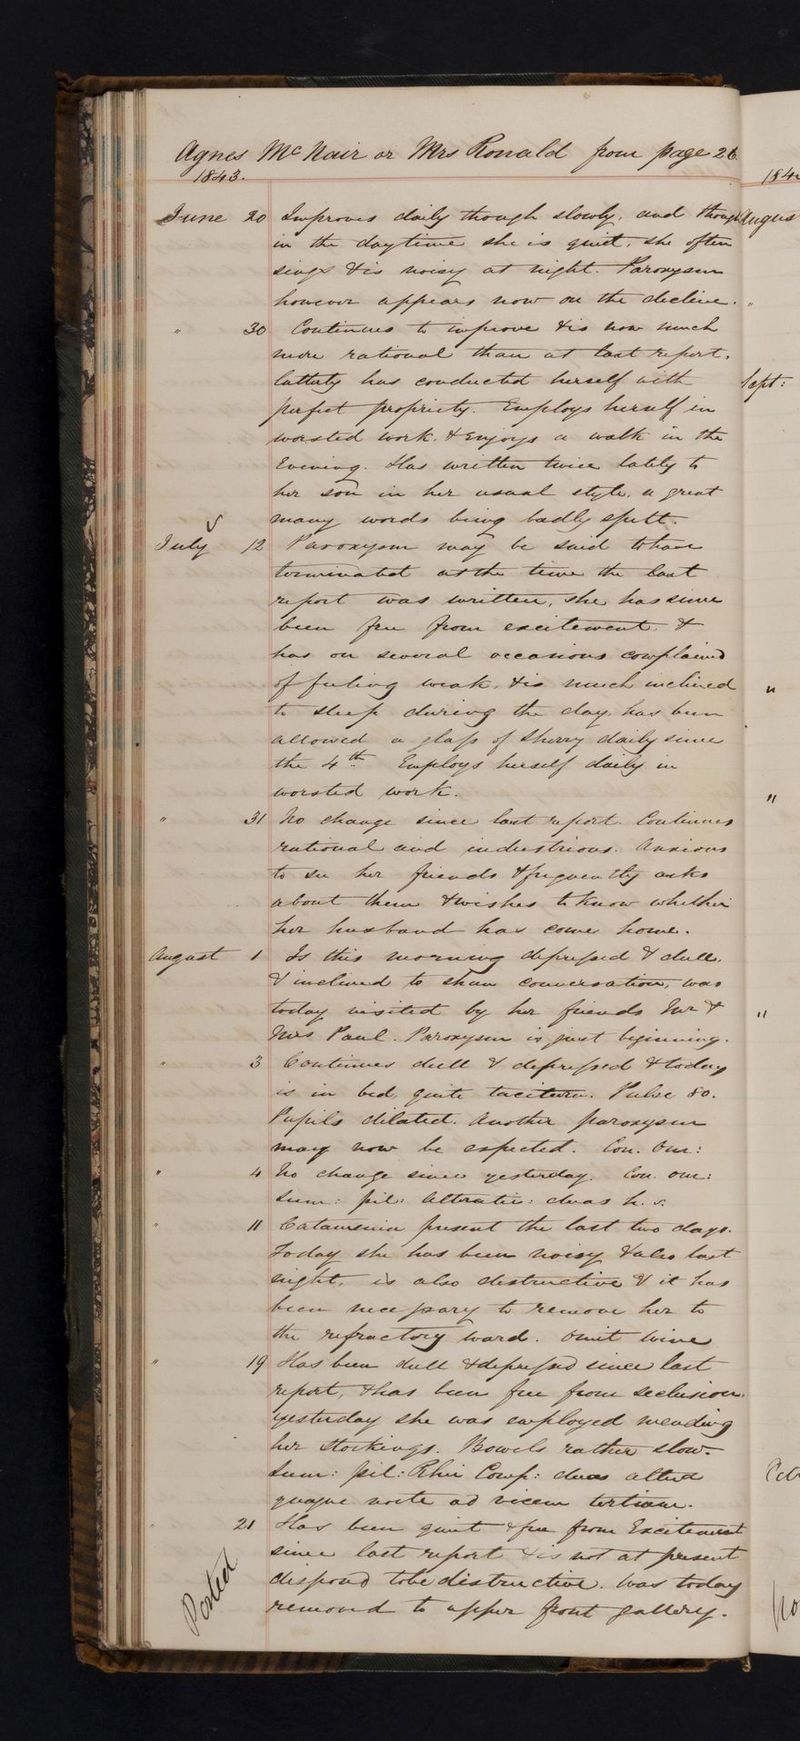 Agnes McNair or Mrs Ronald from page 26
1843.
June 20 Improves daily though slowly, and though
in the daytime she is quiet, she often
sings & is noisy at night. Paroxysm
however appears now on the decline.
" 30 Continues to improve & is now much
more rational than at last report,
latterly has conducted herself with
perfect propriety. Employs herself in
worsted work, & enjoys a walk in the
Evening. Has written twice lately to
her son in her usual style, a great
many words being badly spelt.
July 12 Paroxysm may be said to have
terminated at the time the last
report was written, she has since
been free from excitement, &
has on several occasions complained
of feeling weak, & is much inclined
to sleep during the day, has been
allowed a glass of Sherry daily since
the 4th Employs herself daily in
worsted work.
" 31 No change since last report. Continues
rational and industrious. Anxious
to see her friends & frequently asks
about them & wishes to know whether
her husband has come home.
August 1 Is this morning depressed & dull,
& inclined to shun conversation, was
today visited by her friends Mr &
Mrs Paul. Paroxysm is just beginning.
" 3 Continues dull & depressed & today
is in bed, quite taciturn. Pulse 80.
Pupils dilated. Another paroxysm
may now be expected. Con. Om:
" 4 No change since yesterday. Con. om:
Sum: pil: Alterativ: duas h. s.
" 11 Catamenia present the last two days.
Today she has been noisy & also last
night, is also destructive & it has
been necessary to remove her to
the refractory ward. Omit Wine
" 19 Has been dull & depressed since last
report, & has been free from seclusion.
Yesterday she was employed mending
her stockings. Bowels rather slow.
Sum: pil: Rhei Comp: duas alterâ
quaque nocte ad vicem tertiam.
21 Has been quiet & free from Excitement
since last report & is not at present
disposed to be destructive. Was today
removed to upper front gallery.
Posted
184
Augus
"
Sept:
"
"
"